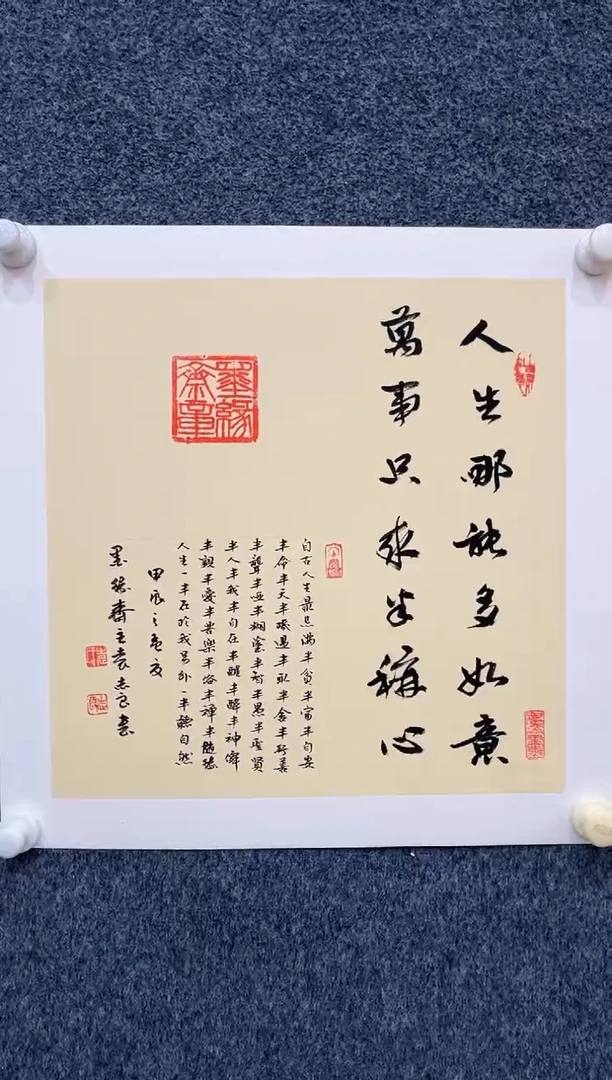 人生哪能多如意
萬事只求半稱心
自古人生最忌滿半貧半富半自安
半命半天半機遇半取半舍半行善
半聾半啞半糊塗半智半愚半聖賢
半人半我半自在半醒半醉半神僊
半親半愛半苦樂半俗半禪半隨緣
人生一半在於我另外一半聽自然
甲辰之夏
墨緣齋主袁志良書
墨緣齋章